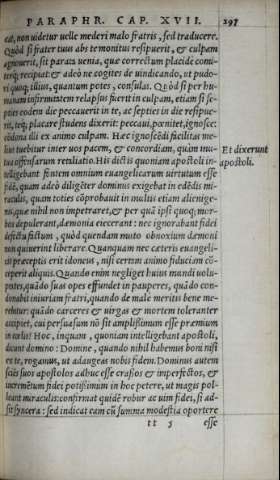 PARAPHR. CAP. XVII. 291
cat, non uidetur uelle mederi malo fratris, sed traducere.
Quòd si frater tuus abs te monitus resipuerit, & culpam
agnouerit, sit parata uenia, quæ correctum placidè comi-
terq; recipiat: & adeò ne cogites de uindicando, ut pudo-
ri quoq; illius, quantum potes, consulas. Quòd si per hu-
manam infirmitatem relapsus fuerit in culpam, etiam si se-
pties eodem die peccauerit in te, ac septies in die resipue-
rit, teq; placare studens dixerit: peccaui, pœnitet, ignosce:
códona illi ex animo culpam. Hæc ignoscēdi facilitas me-
lius tuebitur inter uos pacem, & concordiam, quàm mu-
tua offensarum retaliatio. His dictis quoniam apostoli in-
telligebant fontem omnium euangelicarum uirtutum esse
fidē, quam adeò diligēter dominus exigebat in edēdis mi-
raculis, quam toties cōprobauit in multis etiam alienige-
nis, quæ nihil non impetraret, & per quā ipsi quoq; mor-
bos depulerant, dæmonia eiecerant: nec ignorabant fidei
defectu factum, quòd quendam muto obnoxium dæmoni
non quiuerint liberare. Quanquam nec cæteris euangeli-
cis præceptis erit idoneus, nisi certam animo fiduciam cō-
ceperit aliquis. Quando enim negliget huius mundi uolu-
ptates, quādo suas opes effundet in pauperes, quādo con-
donabit iniuriam fratri, quando de malè meritis bene me-
rebitur: quādo carceres & uirgas & mortem toleranter
accipiet, cui persuasum nō sit amplissimum esse præmium
in cœlis? Hoc, inquam, quoniam intelligebant apostoli,
dicunt domino: Domine, quando nihil habemus boni nisi
ex te, rogamus, ut adaugeas nobis fidem. Dominus autem
sciēs suos apostolos adhuc esse crassos & imperfectos, &
incremētum fidei potissimum in hoc petere, ut magis pol-
leant miraculis: confirmat quidē robur ac uim fidei, si ad-
sit syncera: sed indicat eam cū summa modestia oportere
tt 3 esse
Et dixerunt
apostoli.